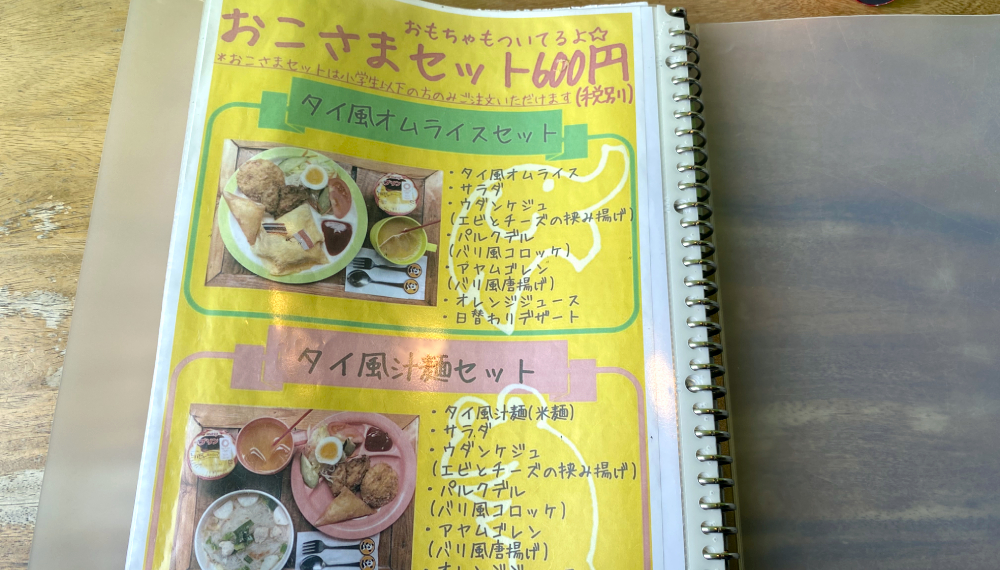 おもちゃもついてるよ☆
おこさまセット600円
*おこさまセットは小学生以下の方のみご注文いただけます(税別)
タイ風オムライスセット
・タイ風オムライス
・サラダ
・ウダンケジュ
(エビとチーズの挟み揚げ)
・パルクデル
(バリ風コロッケ)
・アヤムゴレン
(バリ風唐揚げ)
・オレンジジュース
・日替わりデザート
タイ風汁麺セット
・タイ風汁麺(米麺)
・サラダ
・ウダンケジュ
(エビとチーズの挟み揚げ)
・パルクデル
(バリ風コロッケ)
・アヤムゴレン
(バリ風唐揚げ)